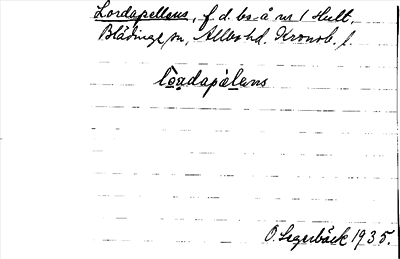 Lordapellens, f. d. bs å nr 1 Hult,
Blädinge sn, Allbo hd. Kronob. l.
lo̲a̲dapèlans
O. Segerbäck 1935.